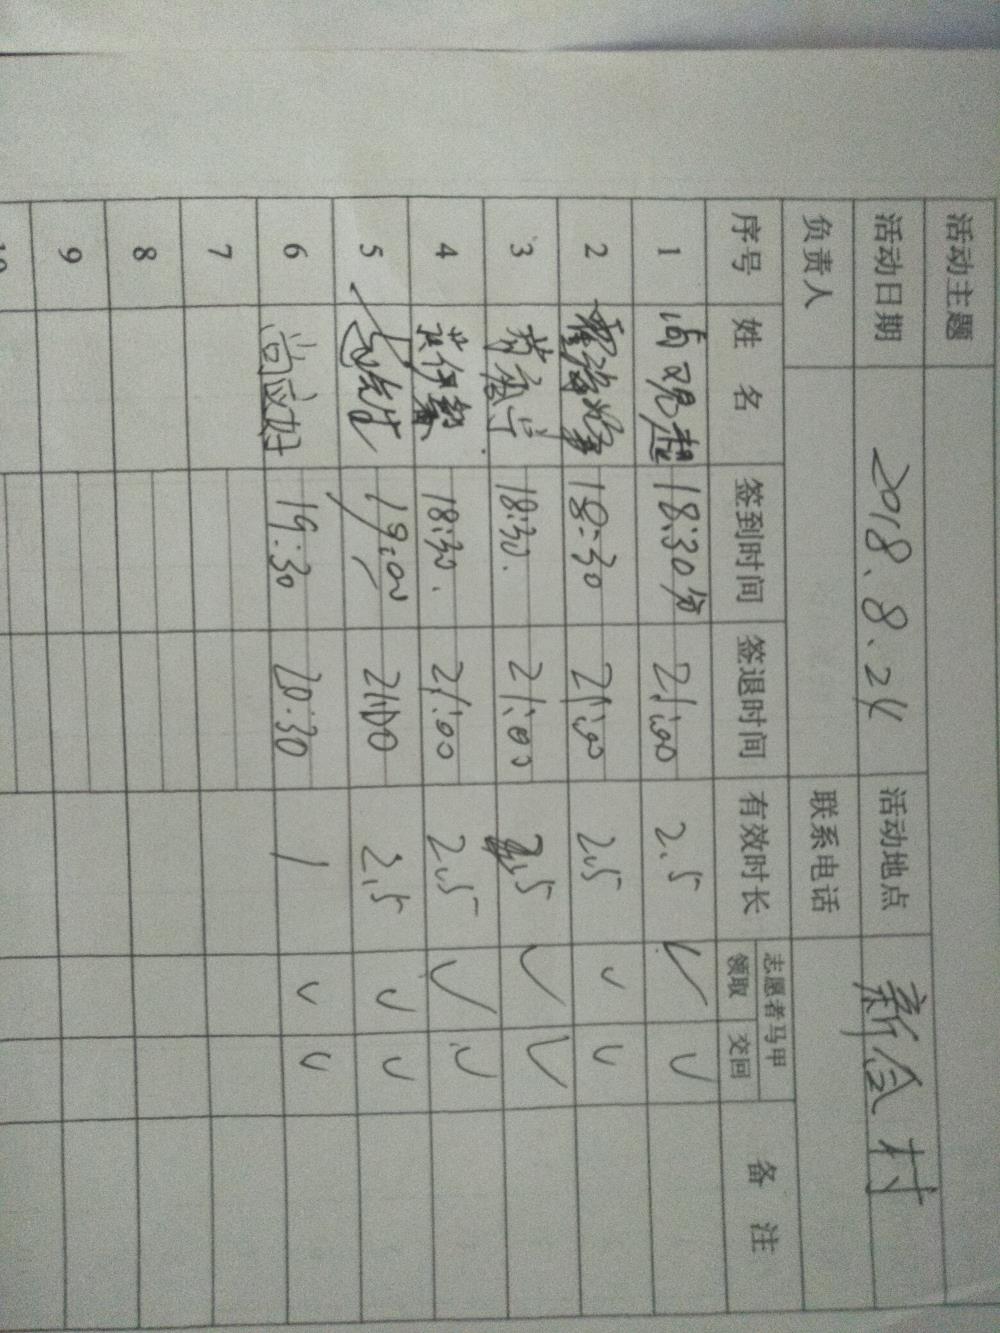 活动主题
活动日期 2018.8.24 活动地点 新合村
负责人 联系电话
序号 姓名 签到时间 签退时间 有效时长 志愿者马甲 领取 交回 备注
1 18:30分 21:00 2.5 ✓ ✓
2 18:30 21:00 2.5 ✓ ✓
3 18:30. 21:00 2.5 ✓ ✓
4 18:30. 21:00 2.5 ✓ ✓
5 19:00 2100 2.5 ✓ ✓
6 19:30 20:30 1 ✓ ✓
7
8
9
10